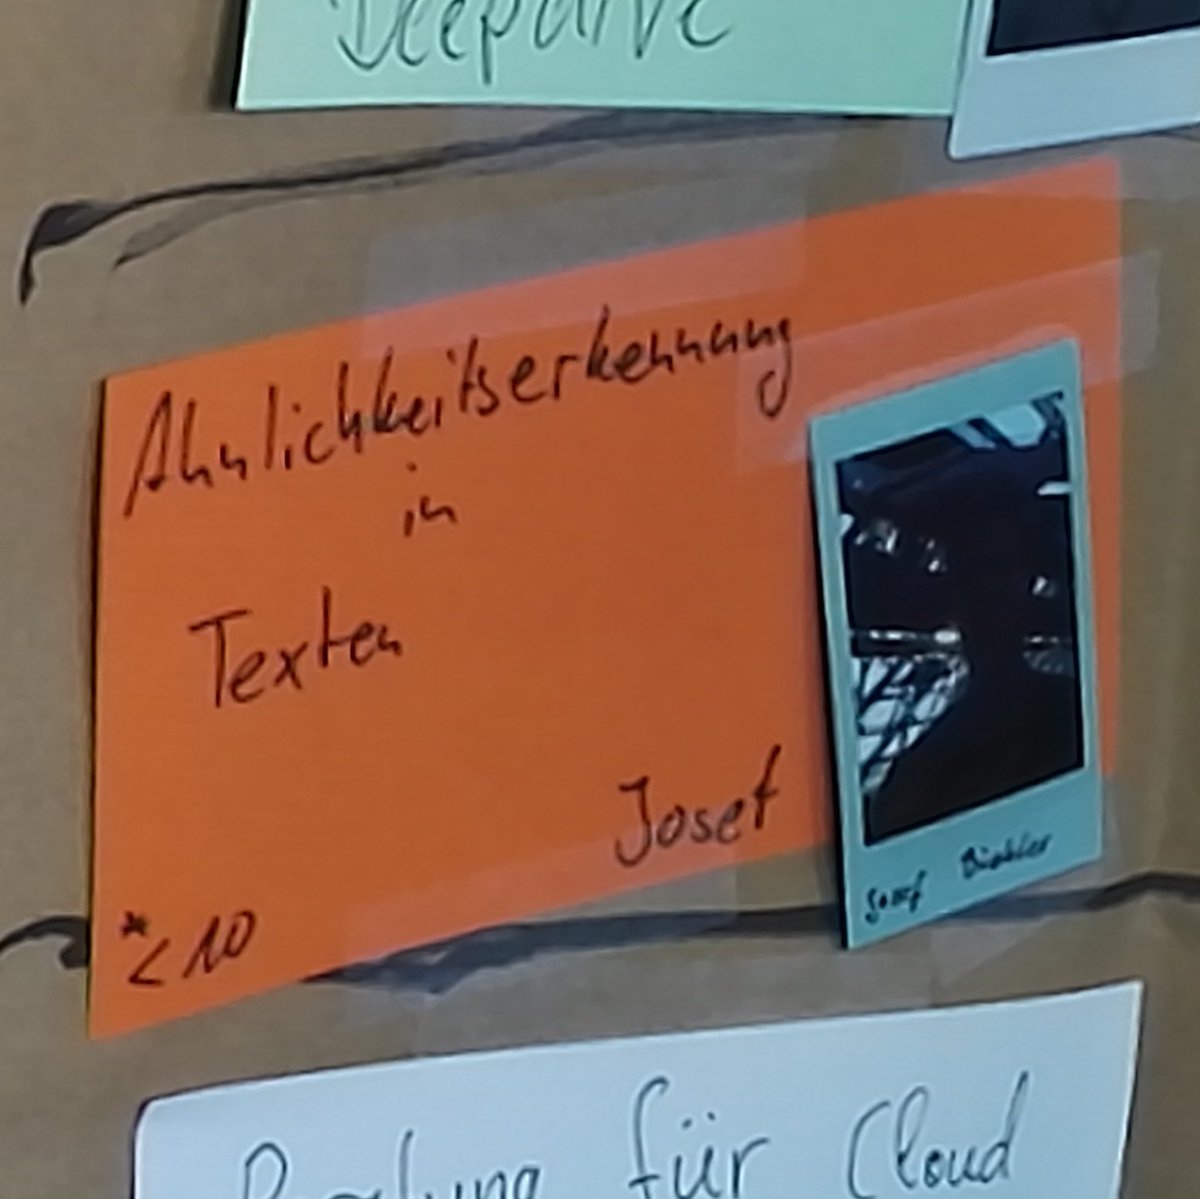 Deepdive
Ähnlichkeitserkennung
in
Texten
Josef
* < 10
Josef
für Cloud